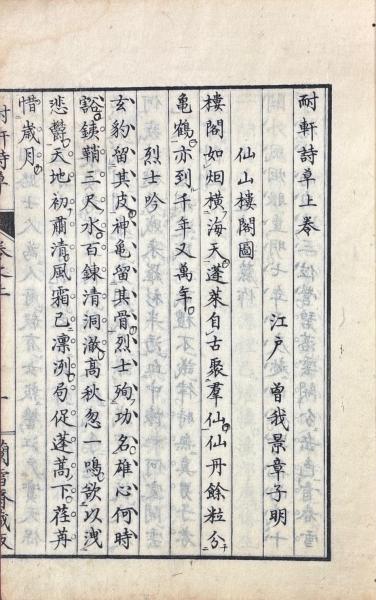 耐軒詩草上巻
江戸 曽我景章子明
仙山樓閣圖
樓閣如烟橫海天蓬萊自古聚羣仙仙丹餘粒分
龜鶴亦到千年又萬年
烈士吟
玄豹留其皮神龜留其骨烈士殉功名雄心何時
豁鋏鞘三尺水百鍊清洞澈高秋忽一鳴欲以洩
悲欝天地初肅清風霜已凛冽局促蓬蒿下荏苒
惜歲月
耐軒詩草 卷之上 一 蘭雪齋藏板